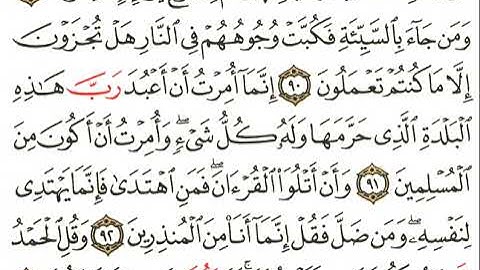 وَمَن جَآءَ بِٱلسَّيِّئَةِ فَكُبَّتْ وُجُوهُهُمْ فِى ٱلنَّارِ هَلْ تُجْزَوْنَ
إِلَّا مَا كُنتُمْ تَعْمَلُونَ ٩٠ إِنَّمَآ أُمِرْتُ أَنْ أَعْبُدَ رَبَّ هَٰذِهِ
ٱلْبَلْدَةِ ٱلَّذِى حَرَّمَهَا وَلَهُۥ كُلُّ شَىْءٍۖ وَأُمِرْتُ أَنْ أَكُونَ مِنَ
ٱلْمُسْلِمِينَ ٩١ وَأَنْ أَتْلُوَا۟ ٱلْقُرْءَانَۖ فَمَنِ ٱهْتَدَىٰ فَإِنَّمَا يَهْتَدِى
لِنَفْسِهِۦۖ وَمَن ضَلَّ فَقُلْ إِنَّمَآ أَنَا۠ مِنَ ٱلْمُنذِرِينَ ٩٢ وَقُلِ ٱلْحَمْدُ